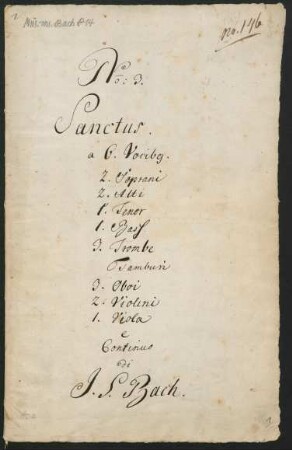 Mus. ms. Bach P 14
no. 146
No: 3.
Sanctus.
a 6. Vocibg.
2. Soprani
2. Alti
1. Tenor
1. Bass
3. Trombe
Tamburi
3. Oboi
2. Violini
1. Viola
e
Continuo
di
J. S. Bach.